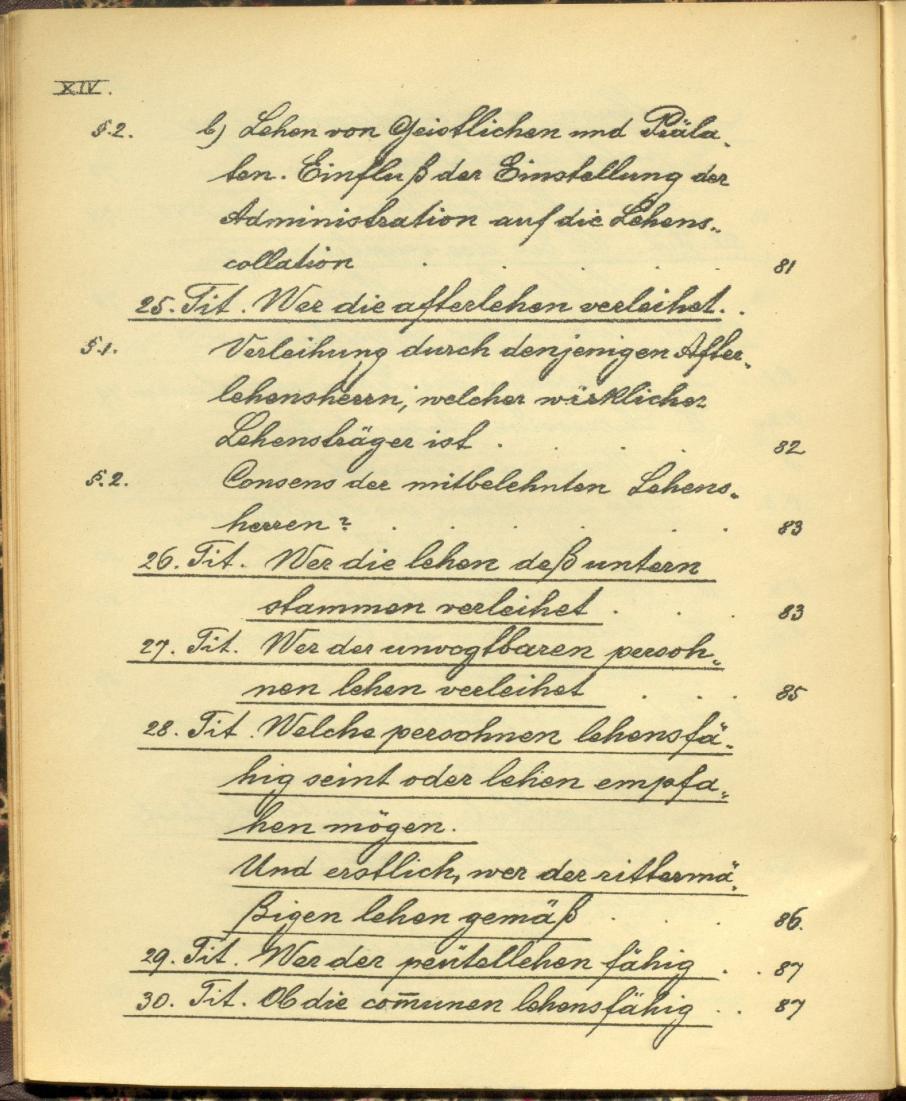 XIV.
§.2. b) Lehen von Geistlichen und Präla„
ten. Einfluß der Einstellung der
Administration auf die Lehens„
collation . . . . . 81
25. Tit. Wer die afterlehen verleihet. .
§.1. Verleihung durch denjenigen After„
lehensherrn, welcher wirklicher
Lehensträger ist . . . . 82
§.2. Consens der mitbelehnten Lehens„
herren? . . . . . . 83
26. Tit. Wer die lehen deß untern
stammen verleihet . . . 83
27. Tit. Wer der unvogtbaren persoh„
nen lehen verleihet . . . 85
28. Tit. Welche persohnen lehensfä„
hig seint oder lehen empfa„
hen mögen.
Und erstlich, wer der rittermä„
ßigen lehen gemäß . . . 86.
29. Tit. Wer der peütellehen fähig . . 87
30. Tit. Ob die com̄unen lehensfähig . . 87